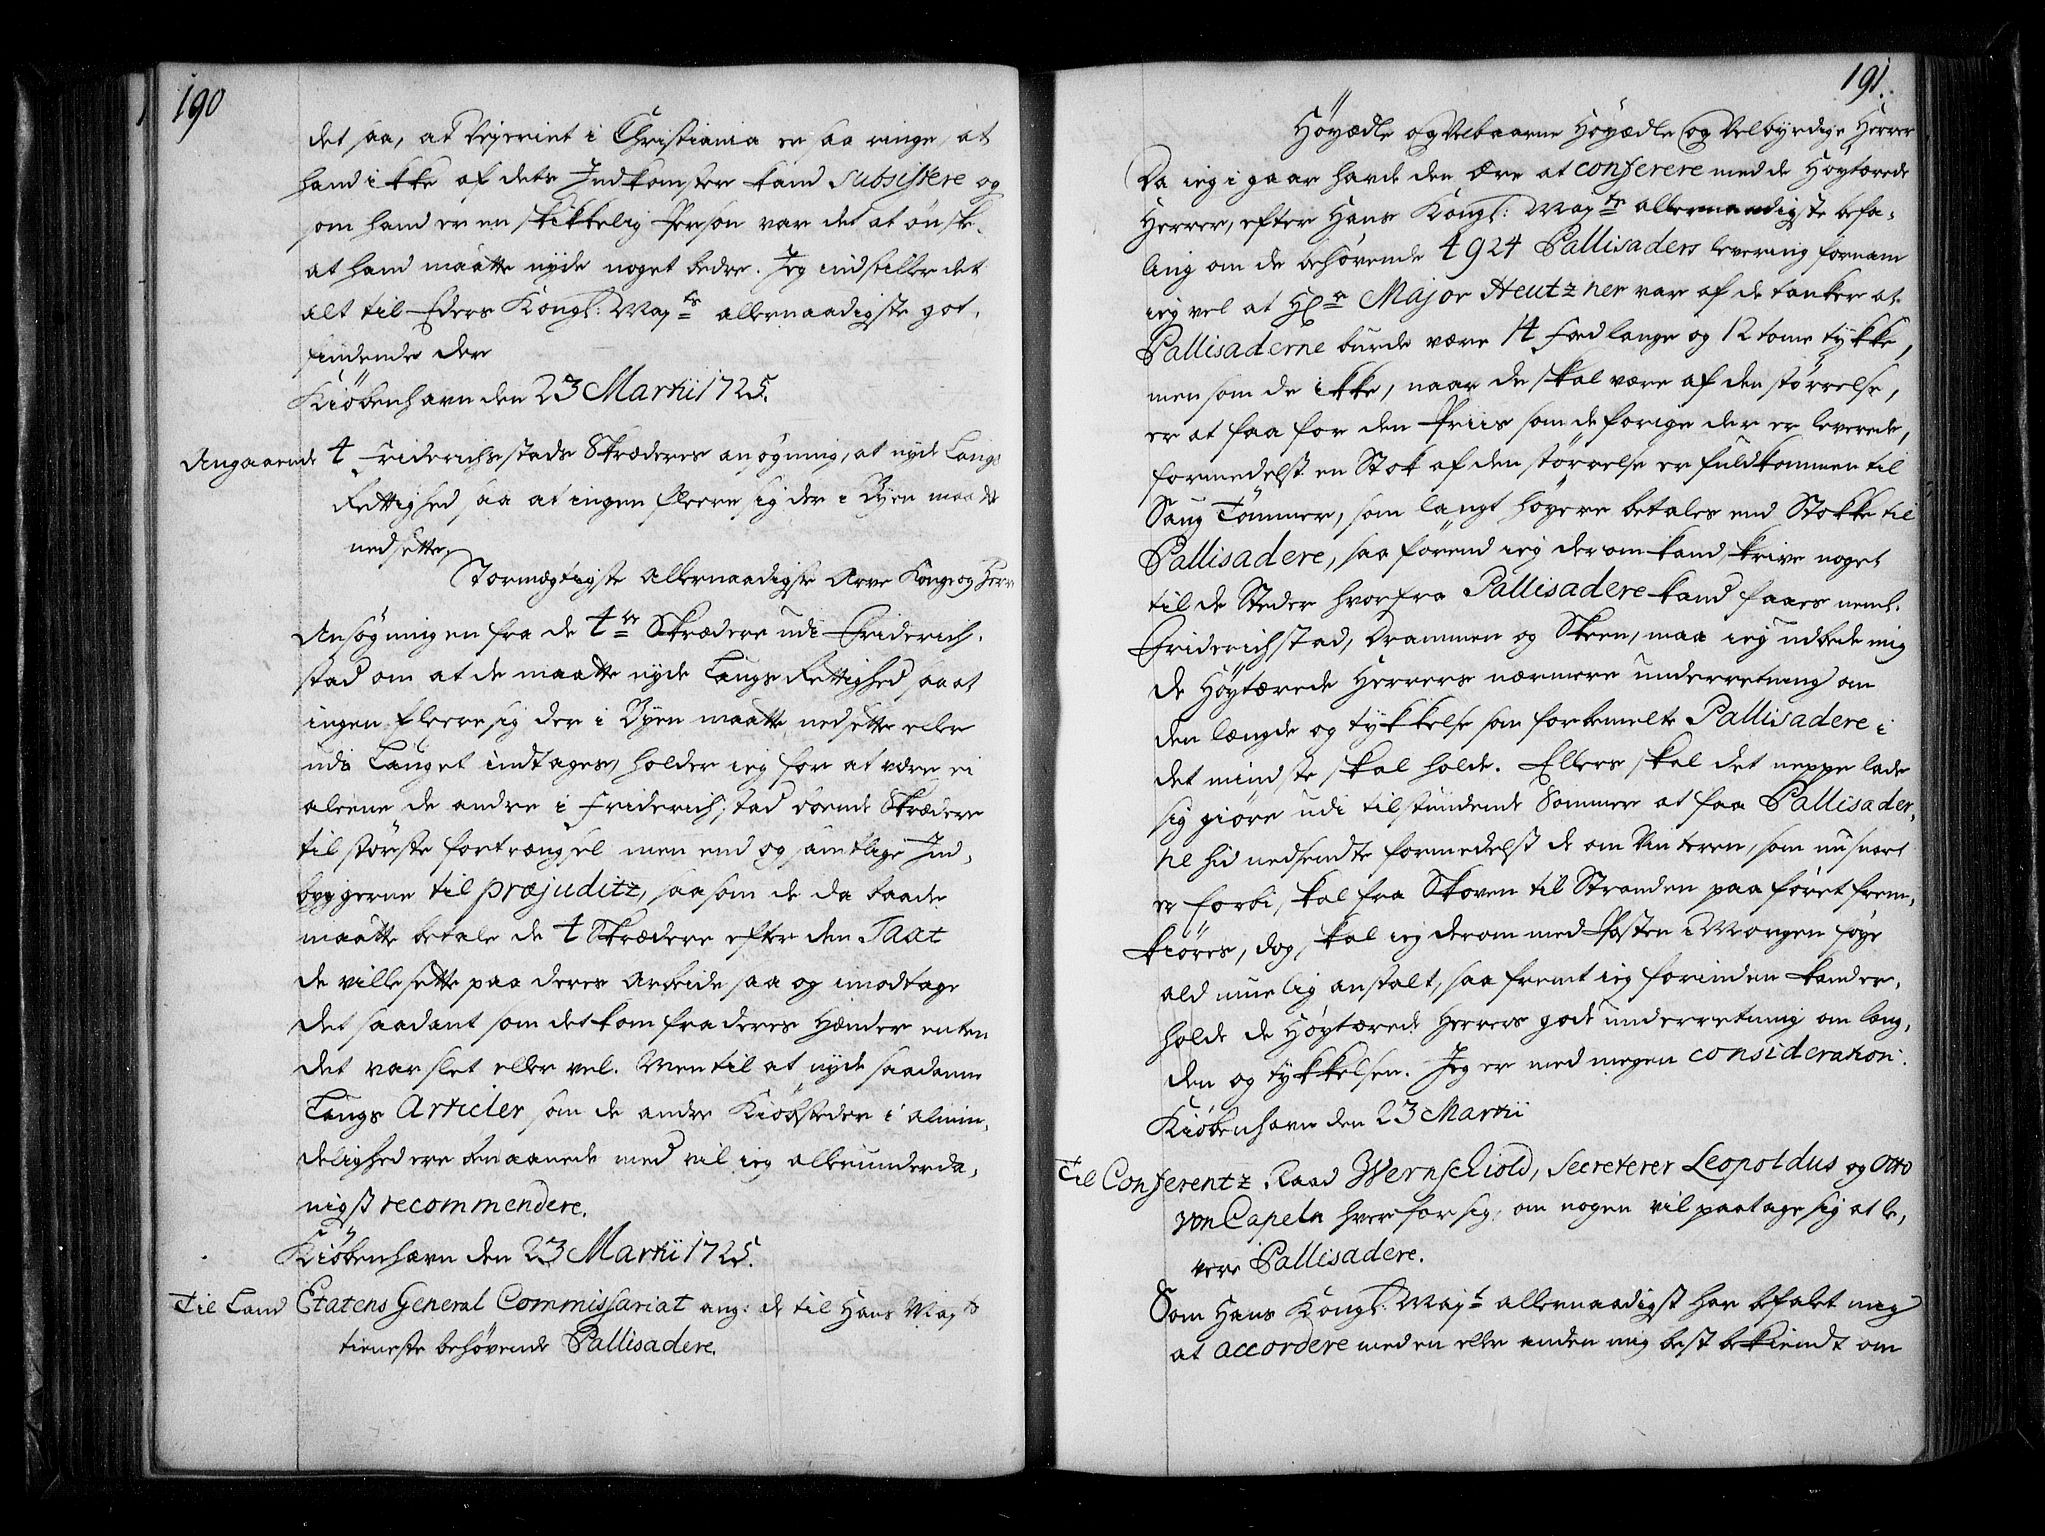 190
det saa, at Vejeriet i Christiania er saa ringe, at
hand ikke af dets Indkomster kand Subsistere og
som hand er en skikkelig Person var det at ønske,
at hand maatte nyde noget bedre. Jeg indstiller det
alt til Eders Kongl: Mayts allernaadigste got,
findende der
Kiøbenhavn den 23 Martii 1725.
Angaaende 4 Friderichsstads Skræderes ansøgning, at nyde Laugs
Rettighed saa at ingen fleere sig der i Byen maatte
nedsette,
Stormægtigste Allernaadigste Arve Konge og Herre
Ansøgningen fra de 4re Skrædere udi Friderich,
stad om at de maatte nyde Laugs Rettighed saa at
ingen fleere sig der i Byen maatte nedsette eller
udi Lauget indtages, holder ieg for at være ei
aleene de andre i Friderichstad boende Skrædere
til største fortrængsel men end og samtlige Ind,
byggerne til præjuditz, saasom de da baade
maatte betale de 4 Skrædere efter den Taxt
de ville sette paa deres Arbeide saa og imodtage
det saadant som det kom fra deres Hænder enten
det var slet eller vel. Men til at nyde saadanne
Laugs Articler som de andre Kiøbsteder i almin,
delighed ere benaadede med vil ieg allerunderda,
nigst recommendere.
Kiøbenhavn den 23 Martii 1725.
Til Land Etatens General Commissariat ang: de til Hans Mayts
tieneste behøvende Pallisadere.
191.
Høyædle og Velbaarne Høyædle og Velbyrdige Herrer
Da ieg i gaar havde den Ære at conferere med de Høytærede
Herrer, efter Hans Kongl: Mayts allernaadigste befa,
ling om de behøvende 4924 Pallisaders levering fornam
ieg vel at Hr Major Heutzner var af de tanker at
Pallisaderne burde være 14 foed lange og 12 tome tykke,
men som de ikke, naar de skal være af den størrelse,
er at faa for den Priis som de forige der er leverede,
formedelst en Stok af den størrelse er fuldkommen til
Saug Tømmer, som langt høyere betales end Stokke til
Pallisadere, saa forend ieg derom kand skrive noget
til de Steder hvorfra Pallisadere kand faaes neml.
Friderichstad, Drammen og Skeen, maa ieg udbede mig
de Høytærede Herrers nærmere underretning om
den længde og tykkelse som forbemelte Pallisadere i
det mindste skal holde. Ellers skal det neppe lade
sig giøre udi tilstundende Sommer at faa Pallisader,
ne hid nedsendte formedelst de om Vinteren, som nu snart
er forbi, skal fra Skoven til Stranden paa føret frem,
kiøres, dog, skal ieg derom med Posten i Morgen søge
ald muelig anstalt, saa fremt ieg forinden kand er,
holde de Høytærede Herrers gode underretning om læng,
den og tykkelsen. Jeg er med megen consideration.
Kiøbenhavn den 23 Martii
Til Conferentz Raad Wernschiold, Secreterer Leopoldus og Otto
von Capeln hver for sig, om nogen vil paatage sig at le,
vere Pallisadere.
Som Hans Kongl: Mayt allernaadigst har befalet mig
at accordere med en eller anden mig best bekiendt om